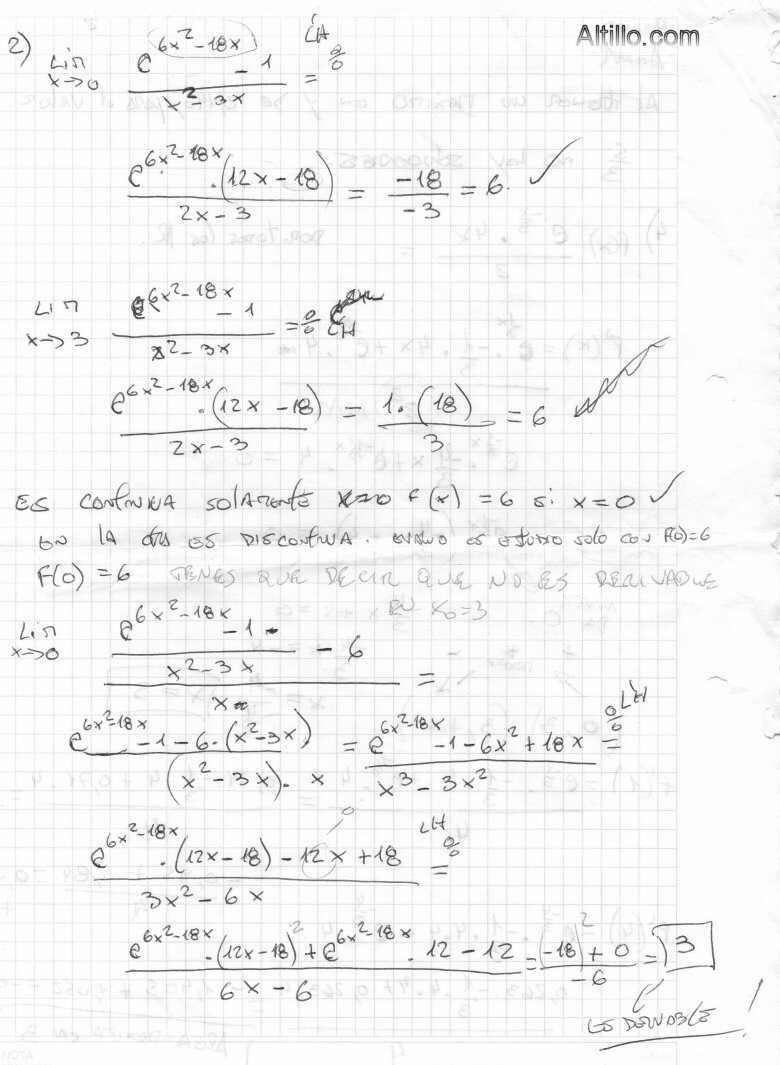 Altillo.com
2) Lim x→0 (e^(6x²-18x) - 1)/(x² - 3x) = L'H 0/0
(e^(6x²-18x) · (12x - 18))/(2x - 3) = -18/-3 = 6. ✓
Lim x→3 (e^(6x²-18x) - 1)/(x² - 3x) = 0/0 L'H
(e^(6x²-18x) · (12x - 18))/(2x - 3) = 1·(18)/3 = 6
ES CONTINUA SOLAMENTE x=0 F(x) = 6 si x = 0 ✓
EN LA OTRA ES DISCONTINUA. ES ESTUDIO SOLO CON F(0)=6
F(0) = 6 TENES QUE DECIR QUE NO ES DERIVABLE
EN X₀=3
Lim x→0 ((e^(6x²-18x) - 1)/(x² - 3x) - 6)/x =
(e^(6x²-18x) - 1 - 6·(x² - 3x))/((x² - 3x)· x) = (e^(6x²-18x) - 1 - 6x² + 18x)/(x³ - 3x²) = 0/0 L'H
0
(e^(6x²-18x) · (12x - 18) - 12x + 18)/(3x² - 6x) = LH 0/0
(e^(6x²-18x) · (12x - 18)² + e^(6x²-18x) · 12 - 12)/(6x - 6) = ((-18)² + 0)/-6 = 3
ES DERIVABLE !